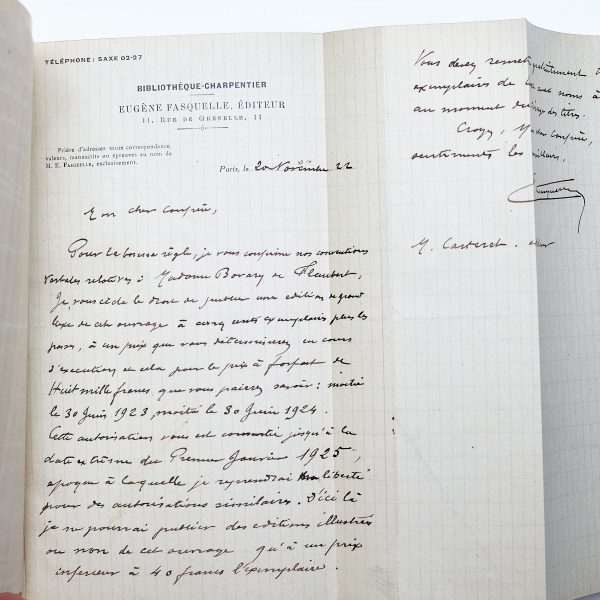 TÉLÉPHONE : SAXE 02-27
BIBLIOTHÈQUE-CHARPENTIER
EUGÈNE FASQUELLE, ÉDITEUR
11, RUE DE GRENELLE, 11
Prière d'adresser toute correspondance,
valeurs, manuscrits ou épreuves au nom de
M. E. FASQUELLE, exclusivement.
Paris, le 20 Novembre 22
Mon cher confrère,
Pour la bonne règle, je vous confirme nos conventions
verbales relatives à Madame Bovary de Flaubert.
Je vous cède le droit de publier une édition de grand
luxe de cet ouvrage à cinq cents exemplaires plus les
passes, à un prix que vous déterminerez en cours
d'exécution et cela pour le prix à forfait de
Huit mille francs que vous paierez savoir : moitié
le 30 Juin 1923, moitié le 30 Juin 1924.
Cette autorisation vous est consentie jusqu'à la
date extrême du Premier Janvier 1925,
époque à laquelle je reprendrai ma liberté
pour des autorisations similaires. D'ici là
je ne pourrai publier des éditions illustrées
ou non de cet ouvrage qu'à un prix
inférieur à 40 francs l'exemplaire.
Vous devez remettre gratuitement
exemplaires de noms à
au moment du des titres.
Croyez, M cher confrère,
sentiments les meilleurs.
M. Carteret.